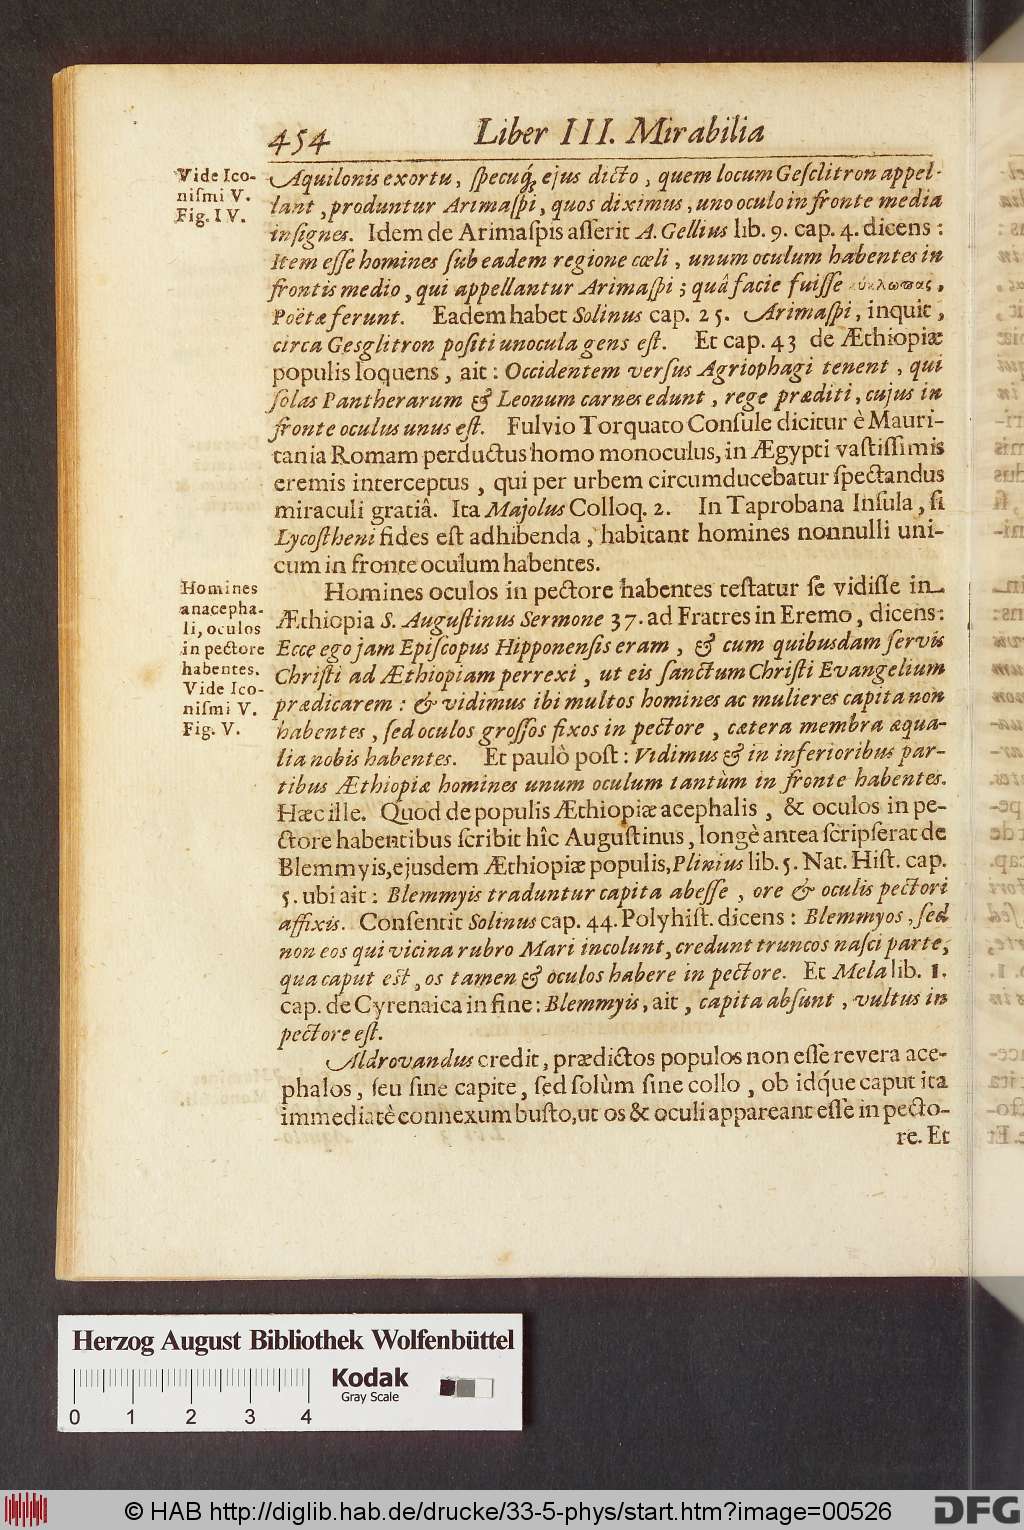 454
Liber III. Mirabilia
Vide Ico-
niſmi V.
Fig. IV.
Aquilonis exortu, ſpecuq́; ejus dicto, quem locum Geſclitron appel-
lant, produntur Arimaſpi, quos diximus, uno oculo in fronte media
inſignes. Idem de Arimaſpis aſſerit A. Gellius lib. 9. cap. 4. dicens:
Item eſſe homines ſub eadem regione cœli, unum oculum habentes in
frontis medio, qui appellantur Arimaſpi; quâ facie fuiſſe κύκλωπας,
Poëtæ ferunt. Eadem habet Solinus cap. 25. Arimaſpi, inquit,
circa Gesglitron poſiti unocula gens eſt. Et cap. 43 de Æthiopiæ
populis loquens, ait: Occidentem verſus Agriophagi tenent, qui
ſolas Pantherarum & Leonum carnes edunt, rege præditi, cujus in
fronte oculus unus eſt. Fulvio Torquato Conſule dicitur è Mauri-
tania Romam perductus homo monoculus, in Ægypti vaſtiſſimis
eremis interceptus, qui per urbem circumducebatur ſpectandus
miraculi gratiâ. Ita Majolus Colloq. 2. In Taprobana Inſula, ſi
Lycoſtheni fides eſt adhibenda, habitant homines nonnulli uni-
cum in fronte oculum habentes.
Homines
anacepha-
li, oculos
in pectore
habentes.
Vide Ico-
niſmi V.
Fig. V.
Homines oculos in pectore habentes teſtatur ſe vidiſſe in
Æthiopia S. Auguſtinus Sermone 37. ad Fratres in Eremo, dicens:
Ecce ego jam Epiſcopus Hipponenſis eram, & cum quibusdam ſervis
Chriſti ad Æthiopiam perrexi, ut eis ſanctum Chriſti Evangelium
prædicarem: & vidimus ibi multos homines ac mulieres capita non
habentes, ſed oculos groſſos fixos in pectore, cætera membra æqua-
lia nobis habentes. Et paulò poſt: Vidimus & in inferioribus par-
tibus Æthiopiæ homines unum oculum tantùm in fronte habentes.
Hæc ille. Quod de populis Æthiopiæ acephalis, & oculos in pe-
ctore habentibus ſcribit hîc Auguſtinus, longè antea ſcripſerat de
Blemmyis, ejusdem Æthiopiæ populis, Plinius lib. 5. Nat. Hiſt. cap.
5. ubi ait: Blemmyis traduntur capita abeſſe, ore & oculis pectori
affixis. Conſentit Solinus cap. 44. Polyhiſt. dicens: Blemmyos, ſed
non eos qui vicina rubro Mari incolunt, credunt truncos naſci parte,
qua caput eſt, os tamen & oculos habere in pectore. Et Mela lib. 1.
cap. de Cyrenaica in fine: Blemmyis, ait, capita abſunt, vultus in
pectore eſt.
Aldrovandus credit, prædictos populos non eſſe revera ace-
phalos, ſeu ſine capite, ſed ſolùm ſine collo, ob idq́ue caput ita
immediatè connexum buſto, ut os & oculi appareant eſſe in pecto-
re. Et
Herzog August Bibliothek Wolfenbüttel
Kodak
Gray Scale
0 1 2 3 4
© HAB http://diglib.hab.de/drucke/33-5-phys/start.htm?image=00526
DFG